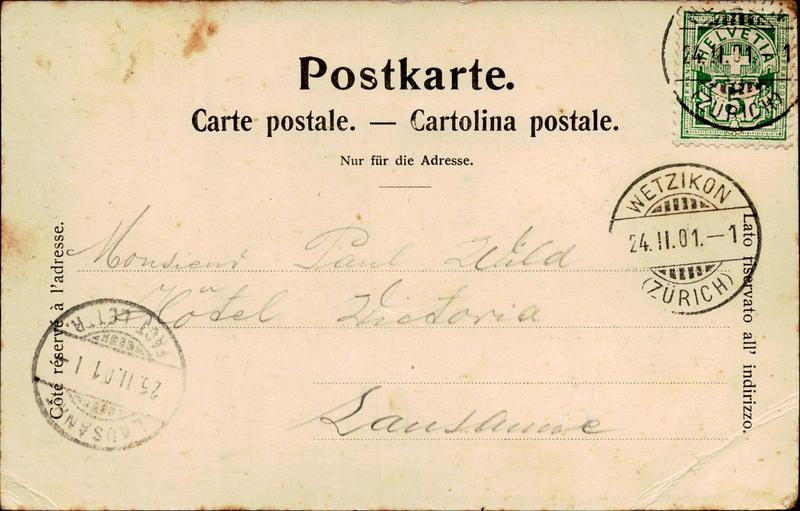 Postkarte.
Carte postale. — Cartolina postale.
Nur für die Adresse.
HELVETIA
5
ZÜRICH)
WETZIKON
24.II.01.—1
(ZÜRICH)
Côté réservé à l'adresse.
Lato riservato all' indirizzo.
Monsieur Paul Wild
Hôtel Victoria
Lausanne
FACT. LETTR.
25.II.01 I
LAUSAN